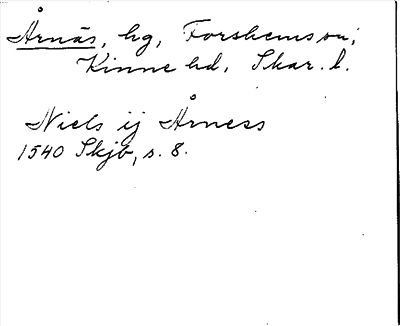 Årnäs, hg, Forshems sn;
Kinne hd, Skar. l.
Niels ij Årness
1540 Skjb, s. 8.